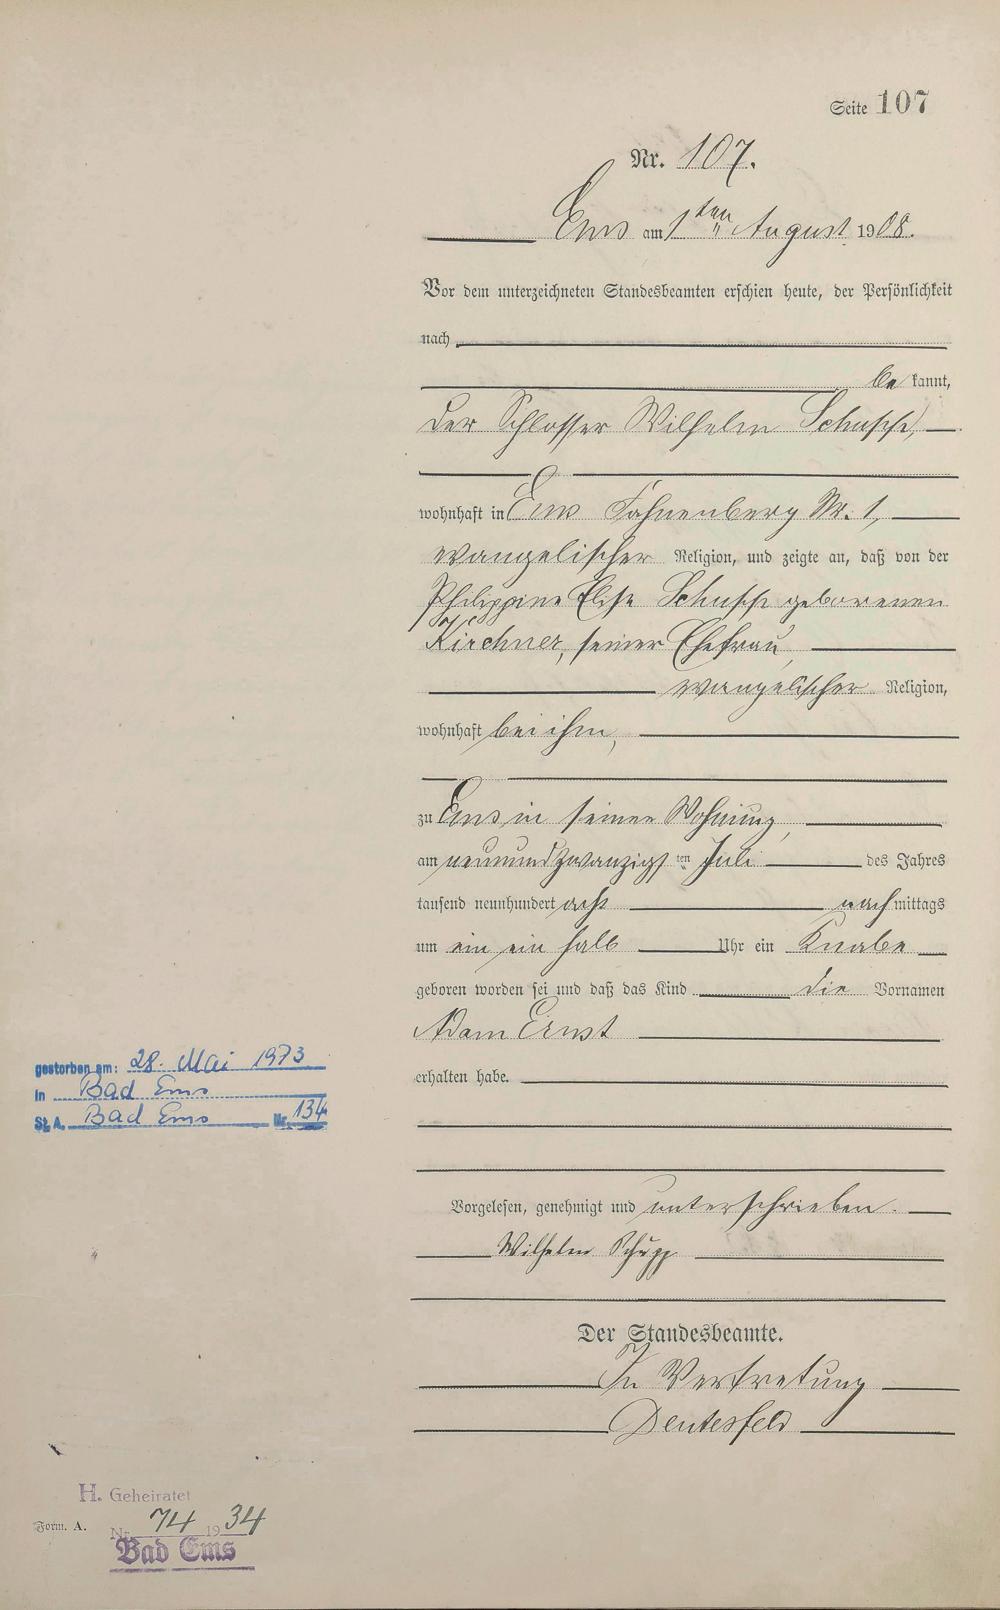 Seite 107
Nr. 107.
Ems am 1ten August 1908.
Vor dem unterzeichneten Standesbeamten erschien heute, der Persönlichkeit
nach
be kannt,
der Schlosser Wilhelm Schupp,
wohnhaft in Ems Fahnenberg Nr. 1,
evangelischer Religion, und zeigte an, daß von der
Philippine Elise Schupp geborenen
Kirchner, seiner Ehefrau,
evangelischer Religion,
wohnhaft bei ihm,
zu Ems in seiner Wohnung,
am neunundzwanzigsten Juli des Jahres
tausend neunhundert acht nach mittags
um ein ein halb Uhr ein Knabe
geboren worden sei und daß das Kind die Vornamen
Adam Ernst
erhalten habe.
gestorben am: 28. Mai 1973
in Bad Ems
St. A. Bad Ems Nr. 134
Vorgelesen, genehmigt und unterschrieben.
Wilhelm Schupp
Der Standesbeamte.
In Vertretung
H. Geheiratet
Form. A.
Nr. 74 1934
Bad Ems